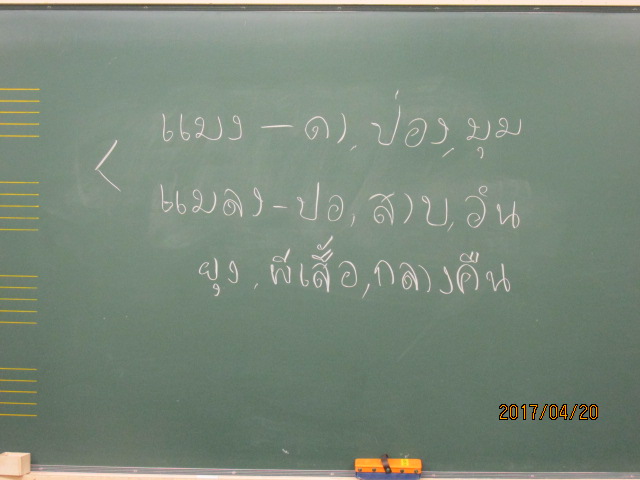 < แมง - ดา, ป่อง, มุม
แมลง - ปอ, สาบ, วัน
ยุง, ผีเสื้อ, กลางคืน
2017/04/20